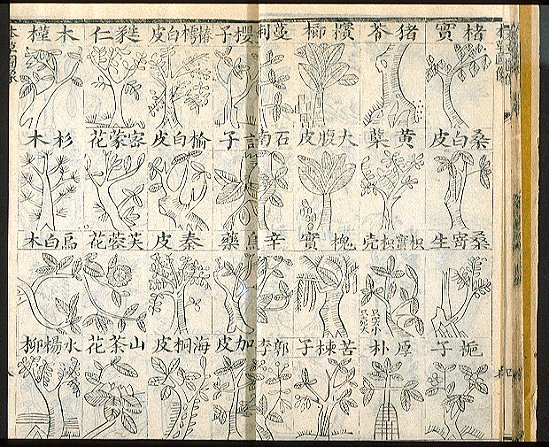 楮實 猪苓 檳榔 蔓 櫻子 樗白皮 蕤仁 木槿
桑白皮 黃蘗 大腹皮 石南 訶子 榆白皮 密蒙花 杉木
桑寄生 枳實枳壳 槐實 辛 烏藥 秦皮 芙蓉花 烏臼木
梔子 厚朴 苦楝子 郁李 加皮 海桐皮 山茶花 水楊柳